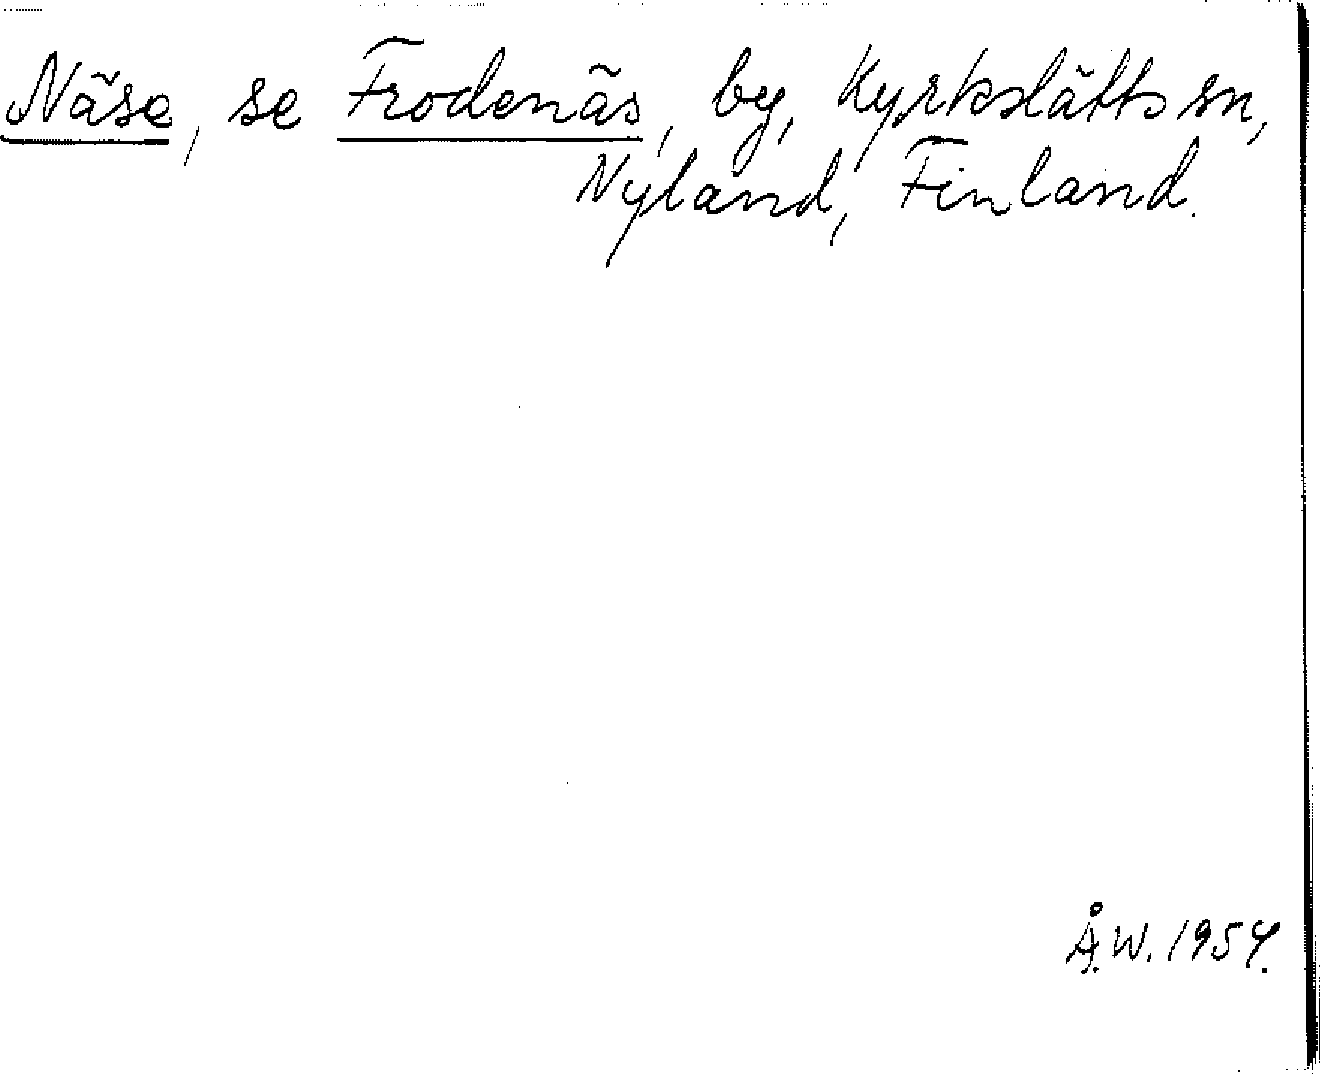 Näse, se Frodenäs, by, Kyrkslätts sn,
Nyland, Finland.
Å.W. 1954.